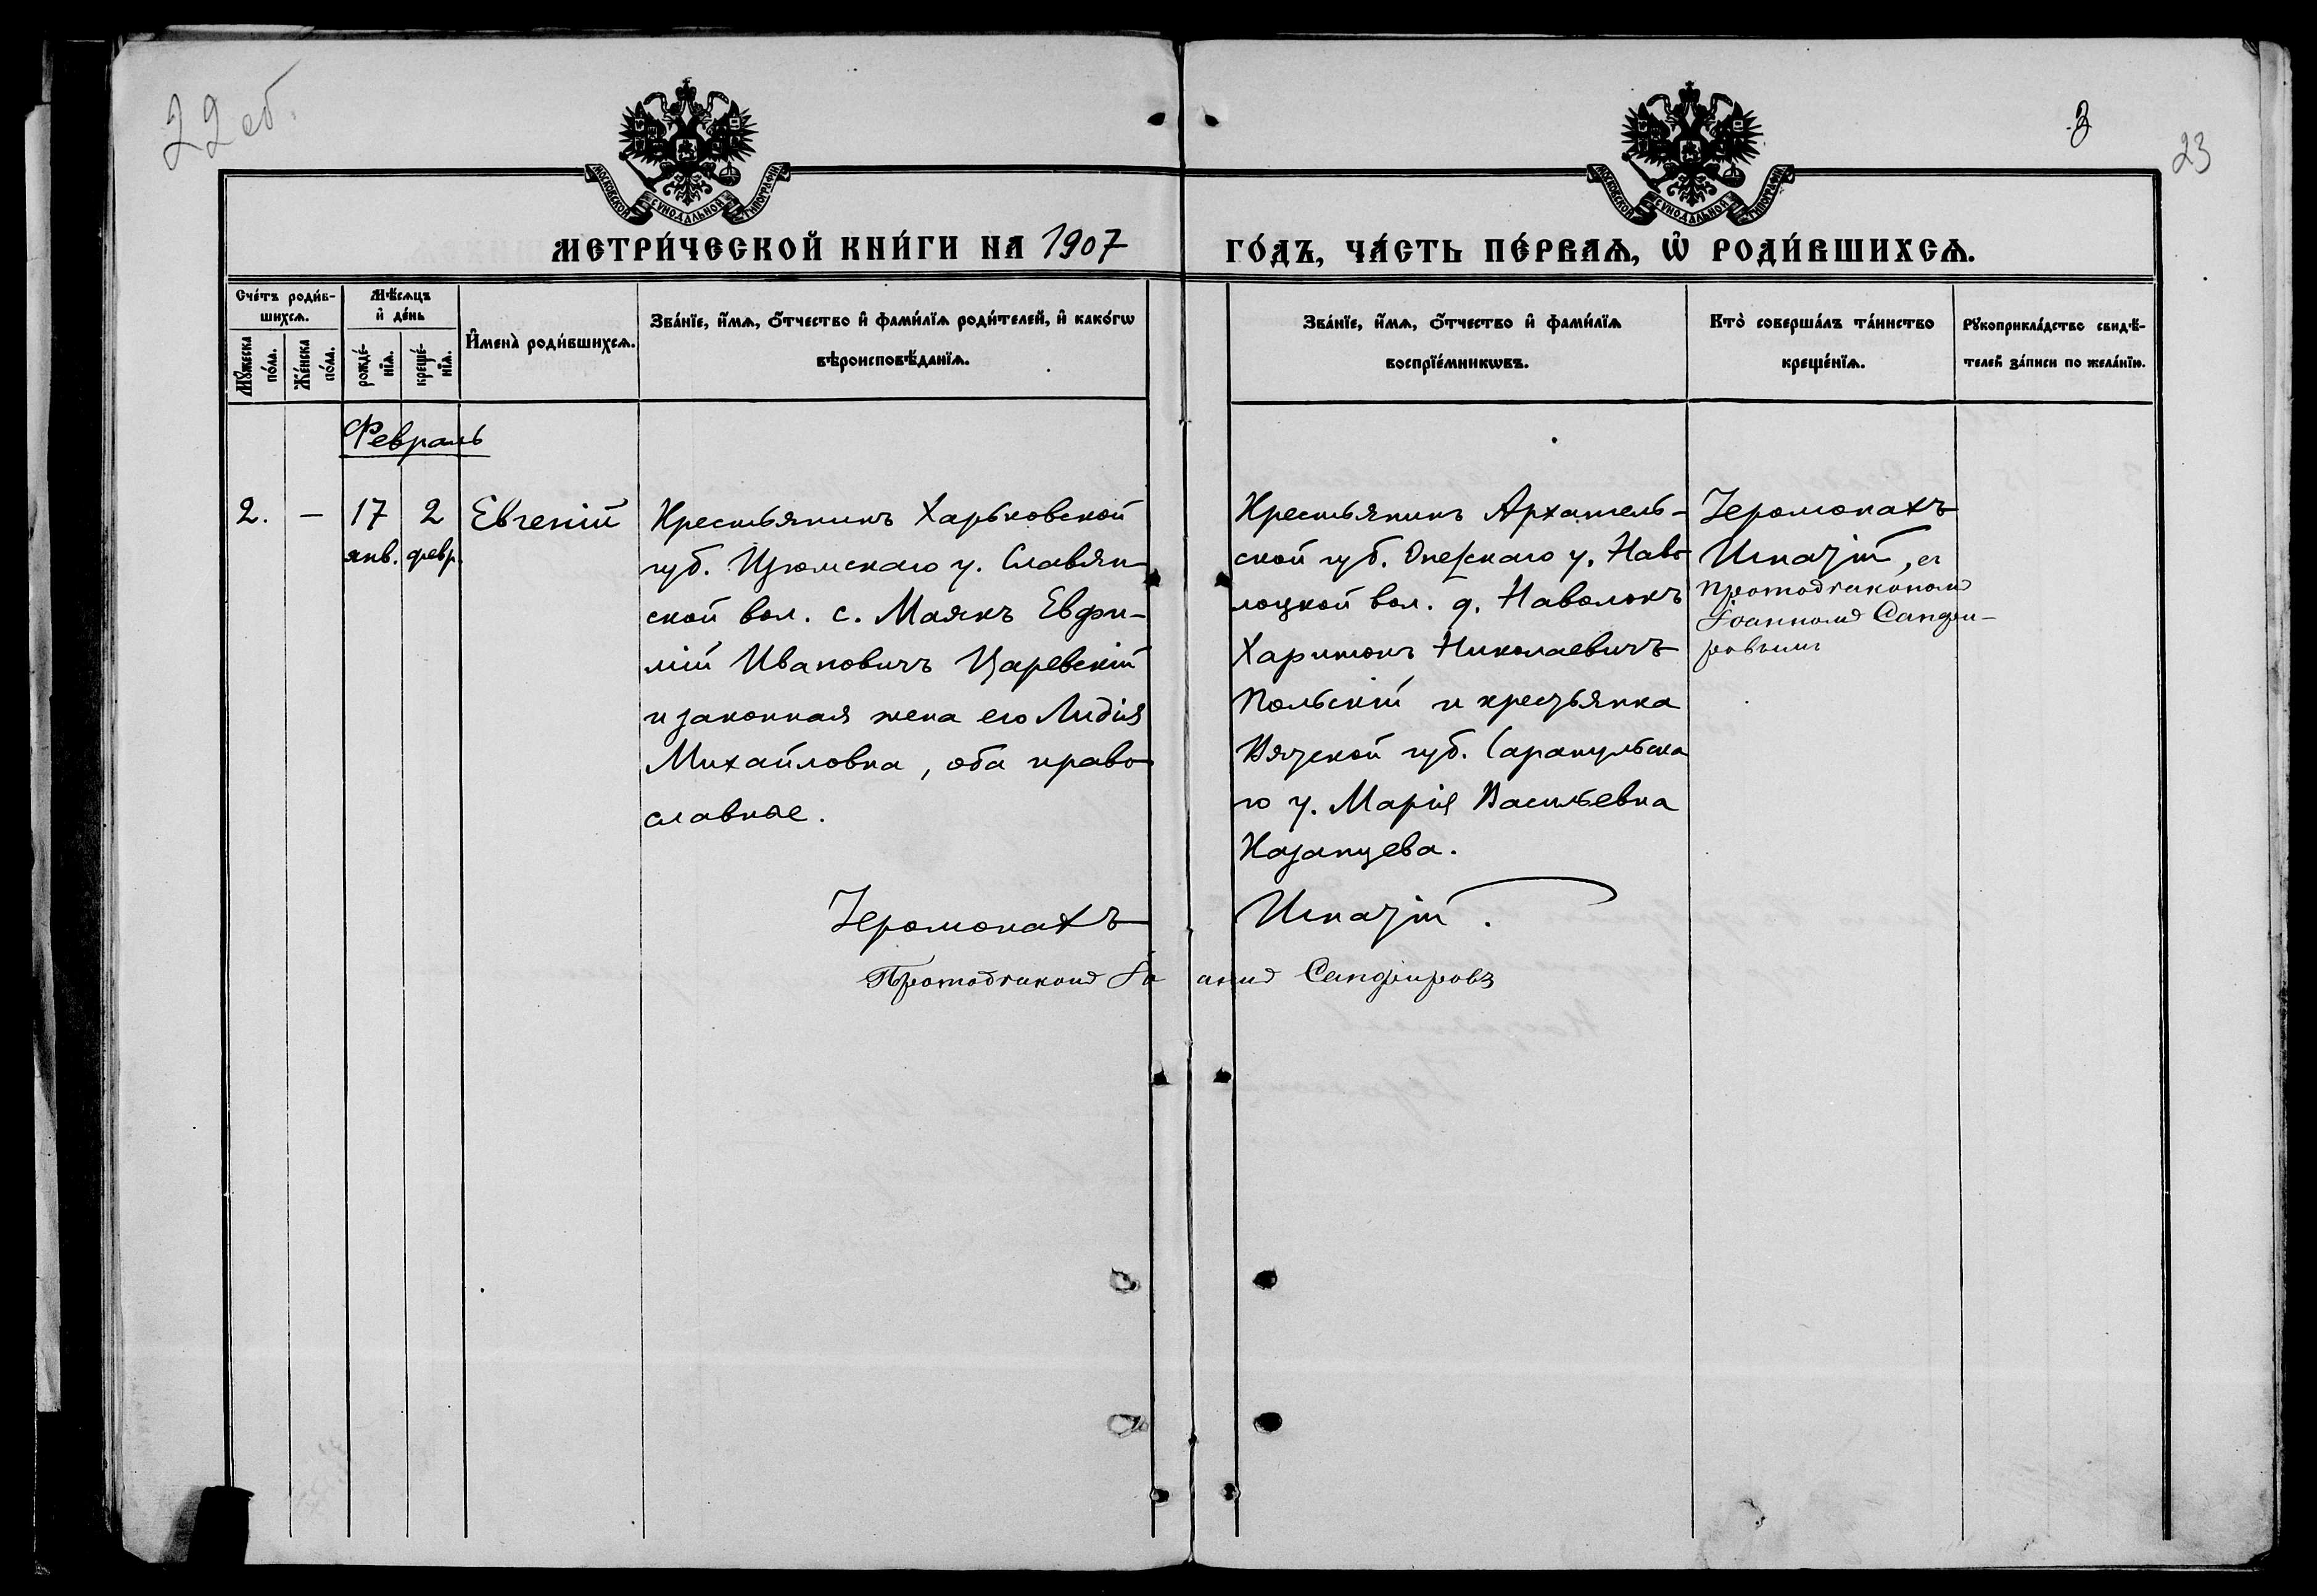 22 об.
3
23
МОСКОВСКОЙ СѴНОДАЛЬНОЙ ТИПОГРАФІИ
МОСКОВСКОЙ СѴНОДАЛЬНОЙ ТИПОГРАФІИ
МЕТРИ́ЧЕСКОЙ КНИ́ГИ НА 1907 ГО́ДЪ, ЧА́СТЬ ПЕ́РВАѦ, Ѡ҆ РОДИ́ВШИХСѦ.
Сче́тъ роди́в-
шихсѧ.
Мꙋ́жеска по́ла.
Же́нска по́ла.
Мѣ́сѧцъ
и҆ де́нь
рожде́-нїѧ.
креще́-нїѧ.
И҆мена̀ роди́вшихсѧ.
Зва́нїе, и҆́мѧ, ѻ҆́тчество и҆ фами́лїѧ роди́телей, и҆ како́гѡ
вѣроисповѣ́данїѧ.
Зва́нїе, и҆́мѧ, ѻ҆́тчество и҆ фами́лїѧ
воспрїе́мникѡвъ.
Кто̀ соверша́лъ та́инство
креще́нїѧ.
Рꙋкоприкла́дство свидѣ́-
телей за́писи по жела́нїю.
Февраль
2. — 17 2 Евгеній
янв. февр.
Крестьянинъ Харьковской
губ. Изюмскаго у. Славян-
ской вол. с. Маякъ Евфи-
мій Ивановичъ Царевскій
и законная жена его Лидія
Михайловна, оба право-
славные.
Крестьянинъ Архангель-
ской губ. Онежскаго у. Наво-
лоцкой вол. д. Наволокъ
Харитонъ Николаевичъ
Польскій и крестьянка
Вятской губ. Сарапульска
го у. Марія Васильевна
Казанцева.
Іеромонахъ
Игнатій, съ
протодіакономъ
Іоанномъ Сапфи-
ровымъ
Іеромонахъ Игнатій.
Протодіаконъ Іоаннъ Сапфировъ